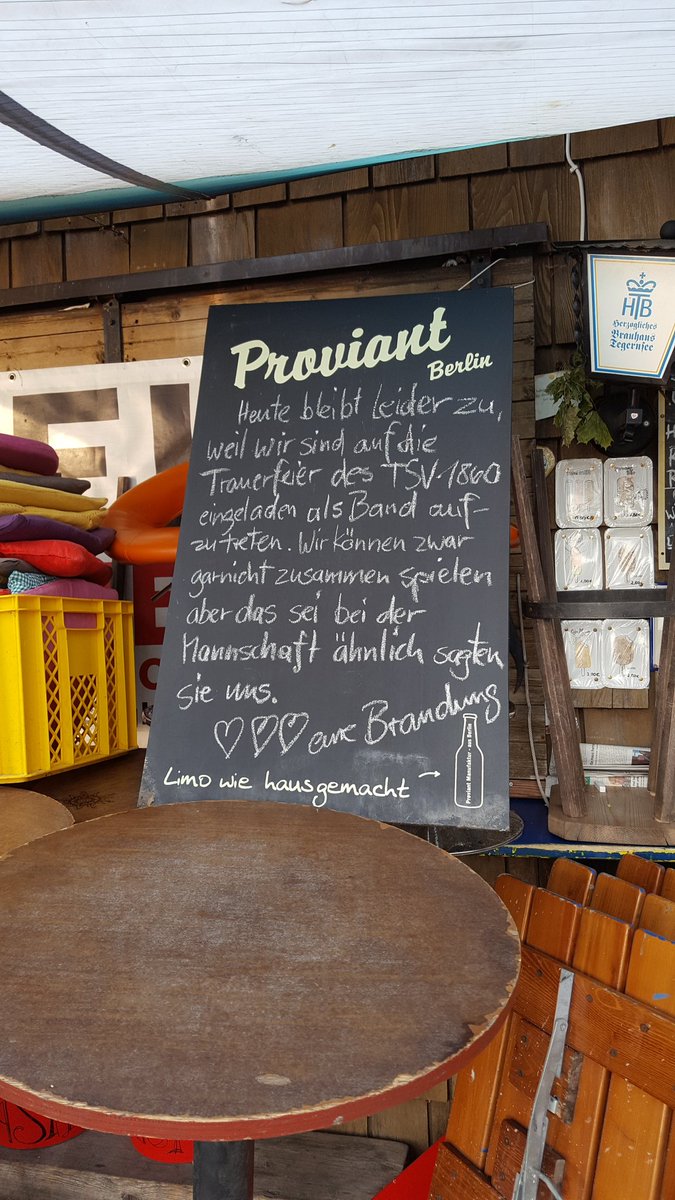 Proviant
Berlin
Heute bleibt leider zu,
weil wir sind auf die
Trauerfeier des TSV-1860
eingeladen als Band auf-
zutreten. Wir können zwar
garnicht zusammen spielen
aber das sei bei der
Mannschaft ähnlich sagten
sie uns.
eure Brandung
Limo wie hausgemacht →
Proviant Manufaktur - aus Berlin
HTB
Herzogliches
Brauhaus
Tegernsee